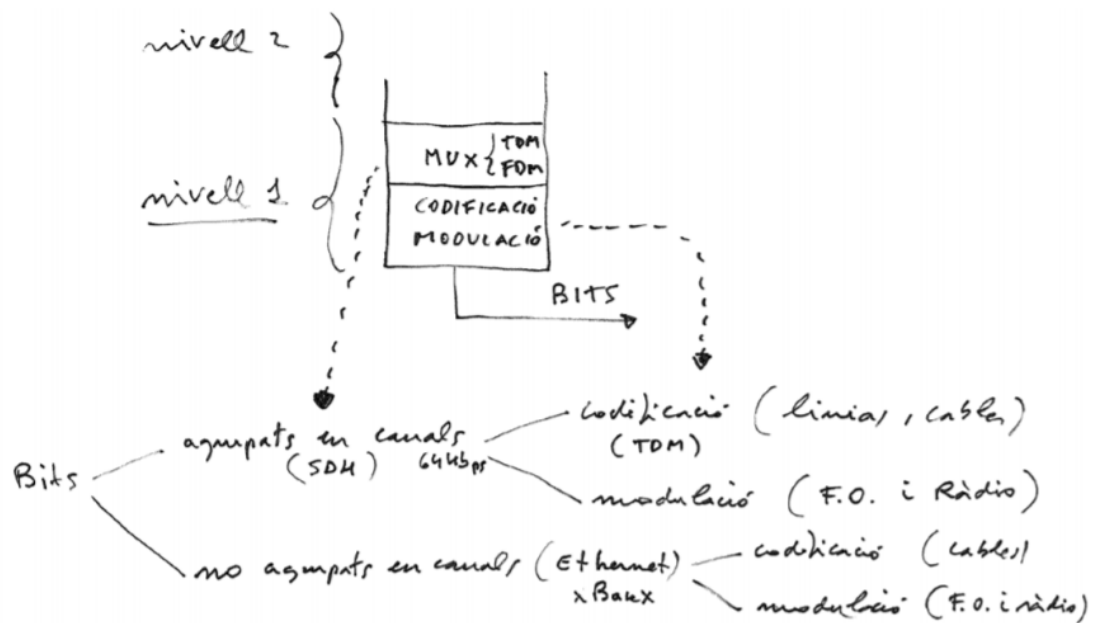 nivell 2
MUX { TDM
FDM
nivell 1
CODIFICACIÓ
MODULACIÓ
BITS
Bits
agrupats en canals
(SDH) 64kbps
codificació (línias, cables)
(TDM)
modulació (F.O. i Ràdio)
no agrupats en canals (Ethernet)
xBaseX
codificació (cables)
modulació (F.O. i ràdio)